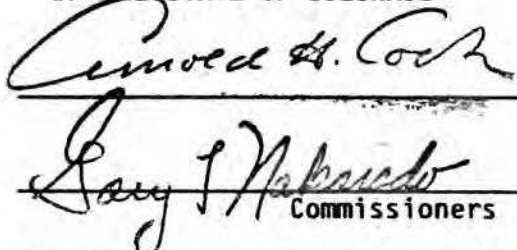 Arnold H. Cook
Gary L Nakarado
Commissioners